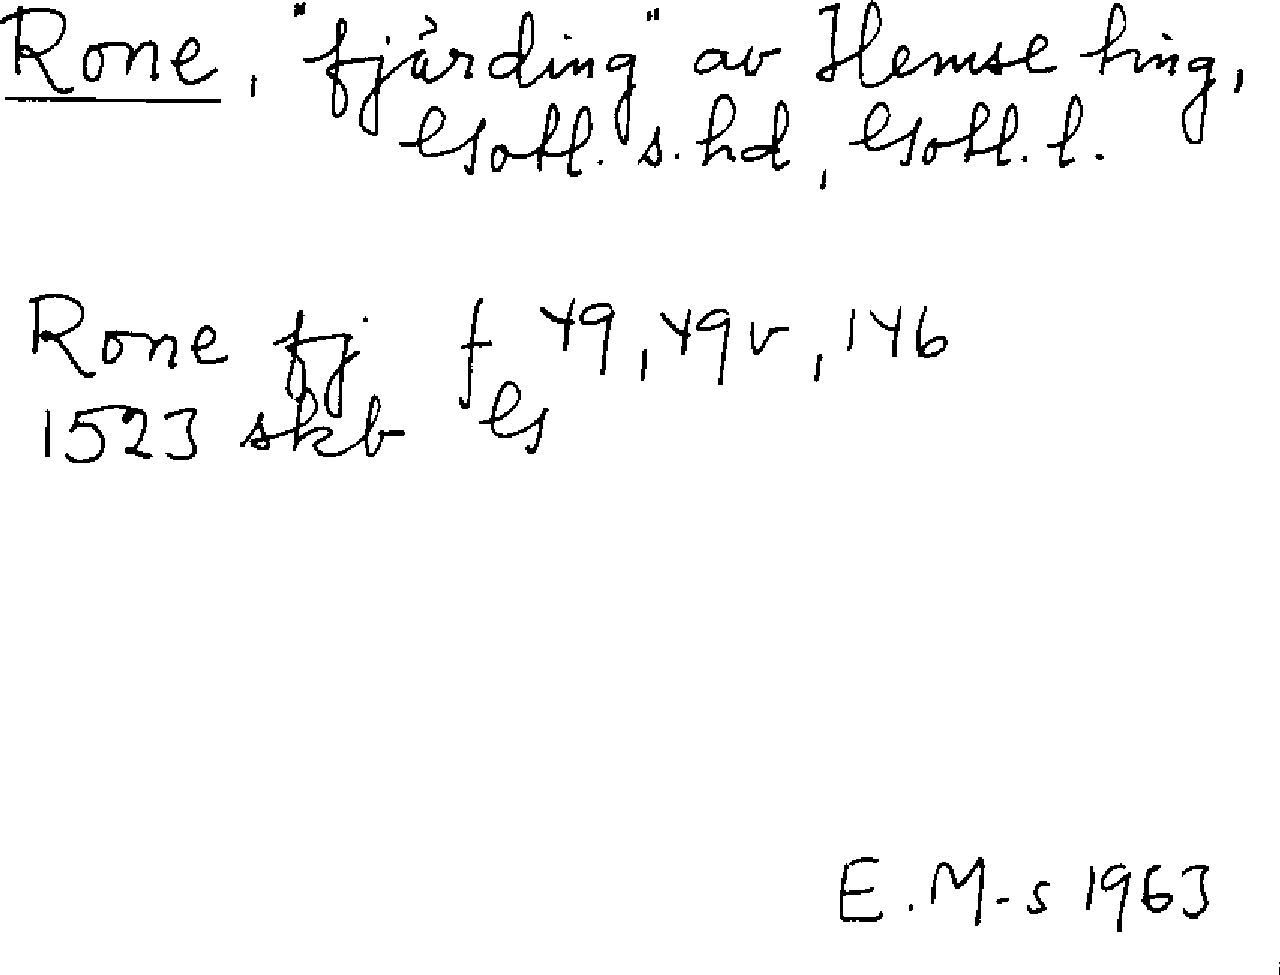 Rone, "fjärding" av Hemse ting,
Gotl. s. hd, Gotl. l.
Rone fj f 49, 49v, 146
1523 skb G
E. M-s 1963